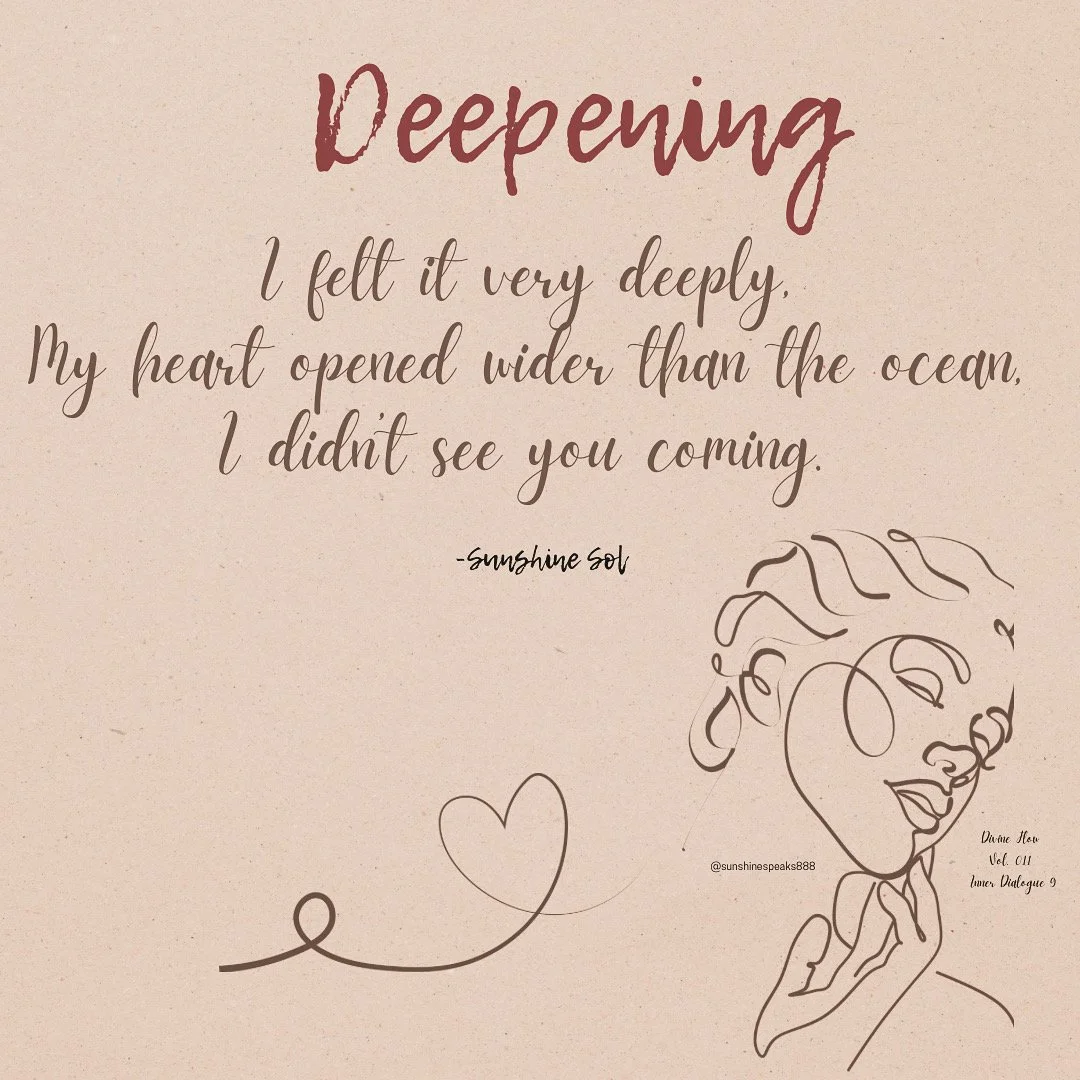 Deepening
I felt it very deeply,
My heart opened wider than the ocean,
I didn't see you coming.
-Sunshine Sol
@sunshinespeaks888
Divine Flow
Vol. 011
Inner Dialogue 9